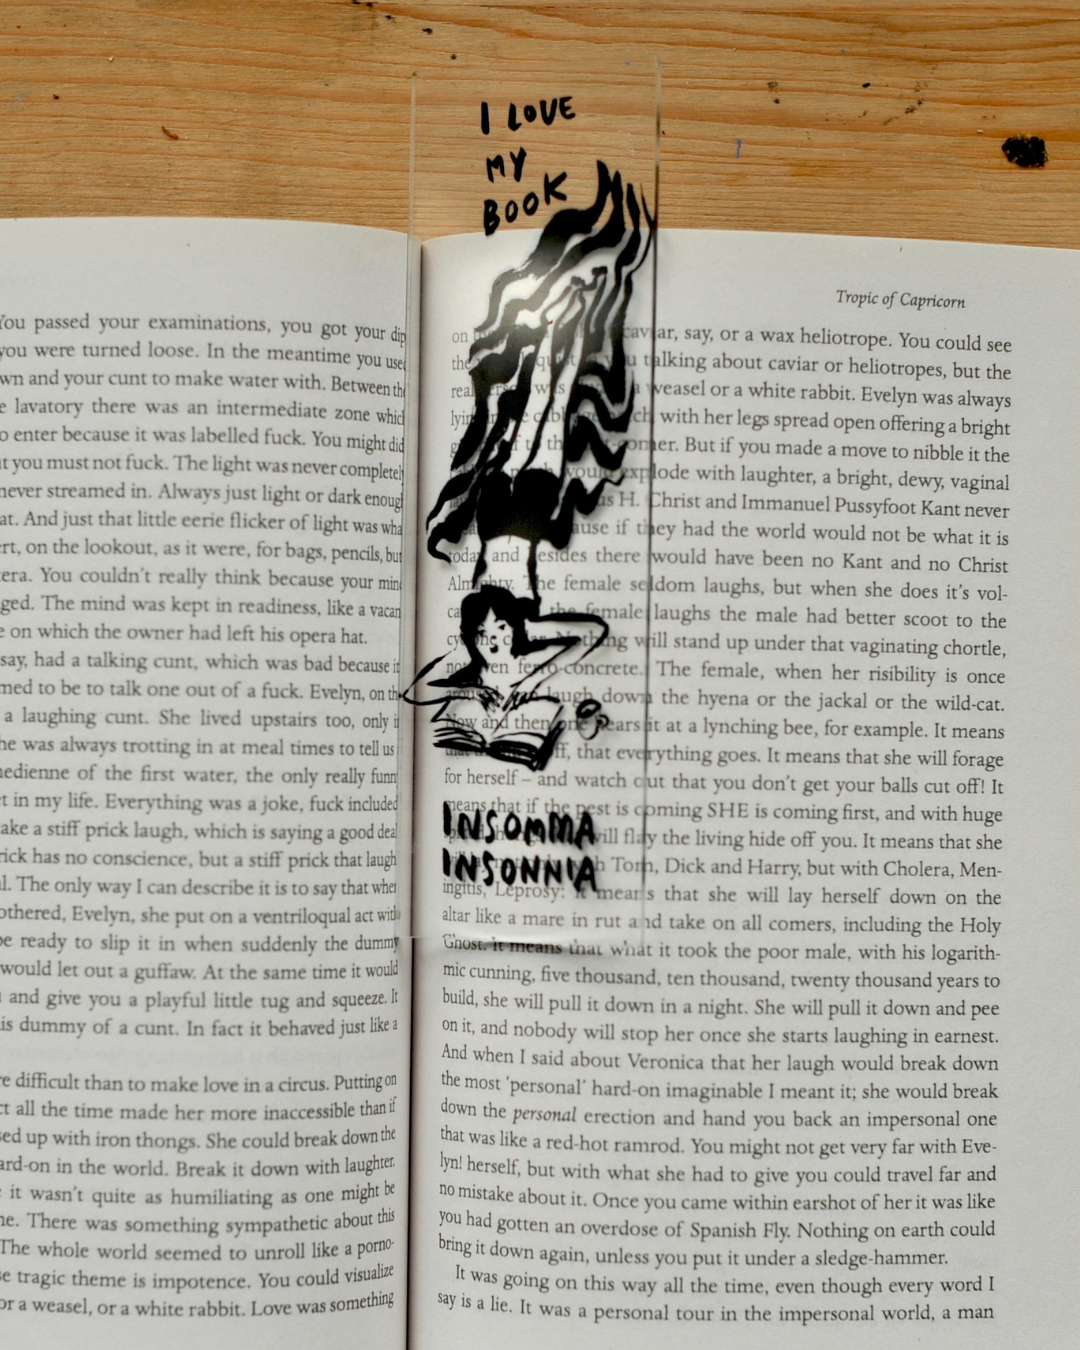 I LOVE
MY
BOOK
INSOMMA
INSONNIA
You passed your examinations, you got your
you were turned loose. In the meantime you
and your cunt to make water with. Between
lavatory there was an intermediate zone
enter because it was labelled fuck. You might
you must not fuck. The light was never
never streamed in. Always just light or dark
And just that little eerie flicker of light was
on the lookout, as it were, for bags, pencils, but
You couldn't really think because your
The mind was kept in readiness, like a
on which the owner had left his opera hat.
say, had a talking cunt, which was bad because it
to be to talk one out of a fuck. Evelyn, on
a laughing cunt. She lived upstairs too, only
was always trotting in at meal times to tell us
of the first water, the only really
in my life. Everything was a joke, fuck included
a stiff prick laugh, which is saying a good
has no conscience, but a stiff prick that
The only way I can describe it is to say that
Evelyn, she put on a ventriloqual act
ready to slip it in when suddenly the dummy
would let out a guffaw. At the same time it would
and give you a playful little tug and squeeze. It
dummy of a cunt. In fact it behaved just like a
difficult than to make love in a circus. Putting on
all the time made her more inaccessible than if
up with iron thongs. She could break down the
in the world. Break it down with laughter.
it wasn't quite as humiliating as one might be
There was something sympathetic about this
The whole world seemed to unroll like a porno-
tragic theme is impotence. You could visualize
or a weasel, or a white rabbit. Love was something
Tropic of Capricorn
on caviar, say, or a wax heliotrope. You could see
the talking about caviar or heliotropes, but the
was a weasel or a white rabbit. Evelyn was always
lying in cabbage with her legs spread open offering a bright
to the But if you made a move to nibble it the
would explode with laughter, a bright, dewy, vaginal
H. Christ and Immanuel Pussyfoot Kant never
if they had the world would not be what it is
today and besides there would have been no Kant and no Christ
Almighty. The female seldom laughs, but when she does it's vol-
the female laughs the male had better scoot to the
cyclone cellar. Nothing will stand up under that vaginating chortle,
not even ferro-concrete. The female, when her risibility is once
laugh down the hyena or the jackal or the wild-cat.
Now and then one hears it at a lynching bee, for example. It means
off, that everything goes. It means that she will forage
for herself – and watch out that you don't get your balls cut off! It
means that if the pest is coming SHE is coming first, and with huge
will flay the living hide off you. It means that she
Tom, Dick and Harry, but with Cholera, Men-
ingitis, Leprosy: it means that she will lay herself down on the
altar like a mare in rut and take on all comers, including the Holy
Ghost. It means that what it took the poor male, with his logarith-
mic cunning, five thousand, ten thousand, twenty thousand years to
build, she will pull it down in a night. She will pull it down and pee
on it, and nobody will stop her once she starts laughing in earnest.
And when I said about Veronica that her laugh would break down
the most 'personal' hard-on imaginable I meant it; she would break
down the personal erection and hand you back an impersonal one
that was like a red-hot ramrod. You might not get very far with Eve-
lyn! herself, but with what she had to give you could travel far and
no mistake about it. Once you came within earshot of her it was like
you had gotten an overdose of Spanish Fly. Nothing on earth could
bring it down again, unless you put it under a sledge-hammer.
It was going on this way all the time, even though every word I
say is a lie. It was a personal tour in the impersonal world, a man